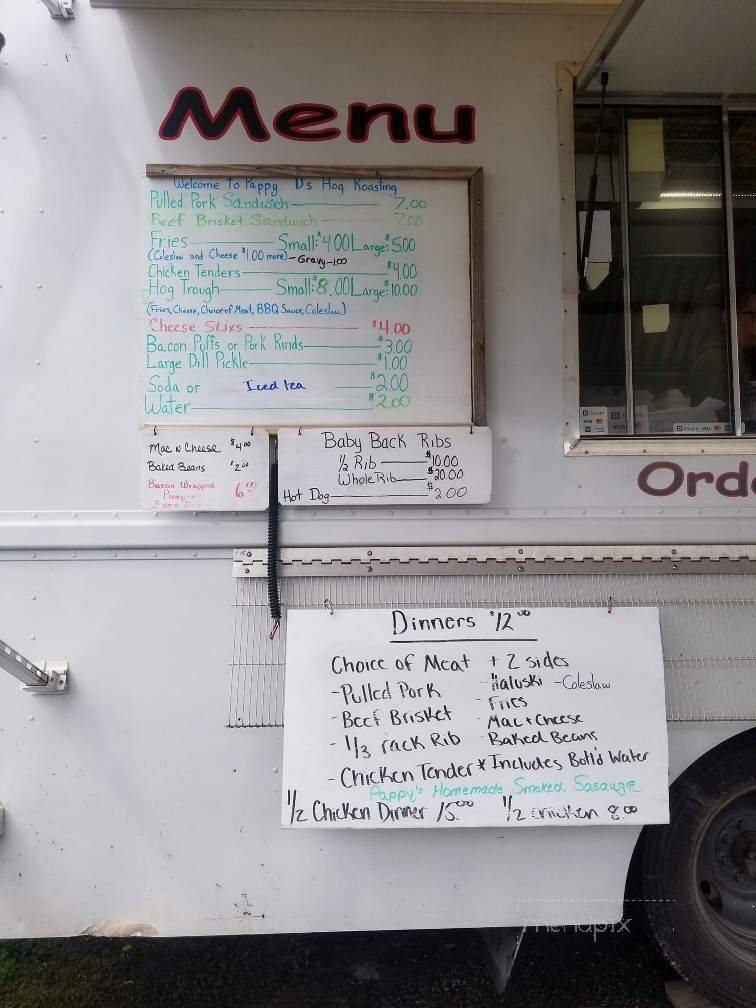 Menu
Welcome To Pappy D's Hog Roasting
Pulled Pork Sandwich 7.00
Beef Brisket Sandwich 7.00
Fries Small: $4.00 Large: $5.00
(Coleslaw and Cheese $1.00 more) - Gravy - 1.00
Chicken Tenders $4.00
Hog Trough Small: $8.00 Large: $10.00
(Fries, Cheese, Choice of Meat, BBQ Sauce, Coleslaw)
Cheese Stixs $4.00
Bacon Puffs or Pork Rinds $3.00
Large Dill Pickle $1.00
Soda or Iced tea $2.00
Water $2.00
Mac N Cheese $4.00
Baked Beans $2.00
Bacon Wrapped
6.00
Baby Back Ribs
1/2 Rib $10.00
Whole Rib $20.00
Hot Dog $2.00
Orde
Dinners $12.00
Choice of Meat + 2 sides
- Pulled Pork - Haluski - Coleslaw
- Fries
- Beef Brisket - Mac + Cheese
- 1/3 rack Rib - Baked Beans
- Chicken Tender * Includes Bott'd Water
Pappy's Homemade Smoked Sasauge
1/2 Chicken Dinner 15.00 1/2 chicken 8.00
menupix